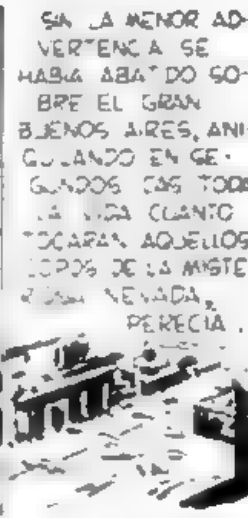 SIN LA MENOR AD-
VERTENCIA SE
HABIA ABATIDO SO-
BRE EL GRAN
BUENOS AIRES, ANI-
QUILANDO EN SE-
GUNDOS CASI TODA
LA VIDA CUANTO
TOCARAN AQUELLOS
COPOS DE LA MISTE-
RIOSA NEVADA,
PERECIA.